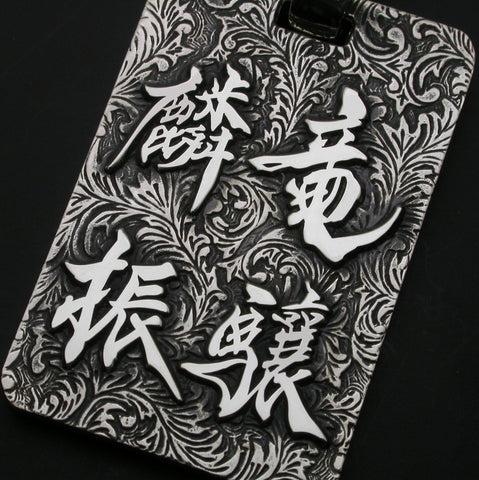 竜驤
麟振